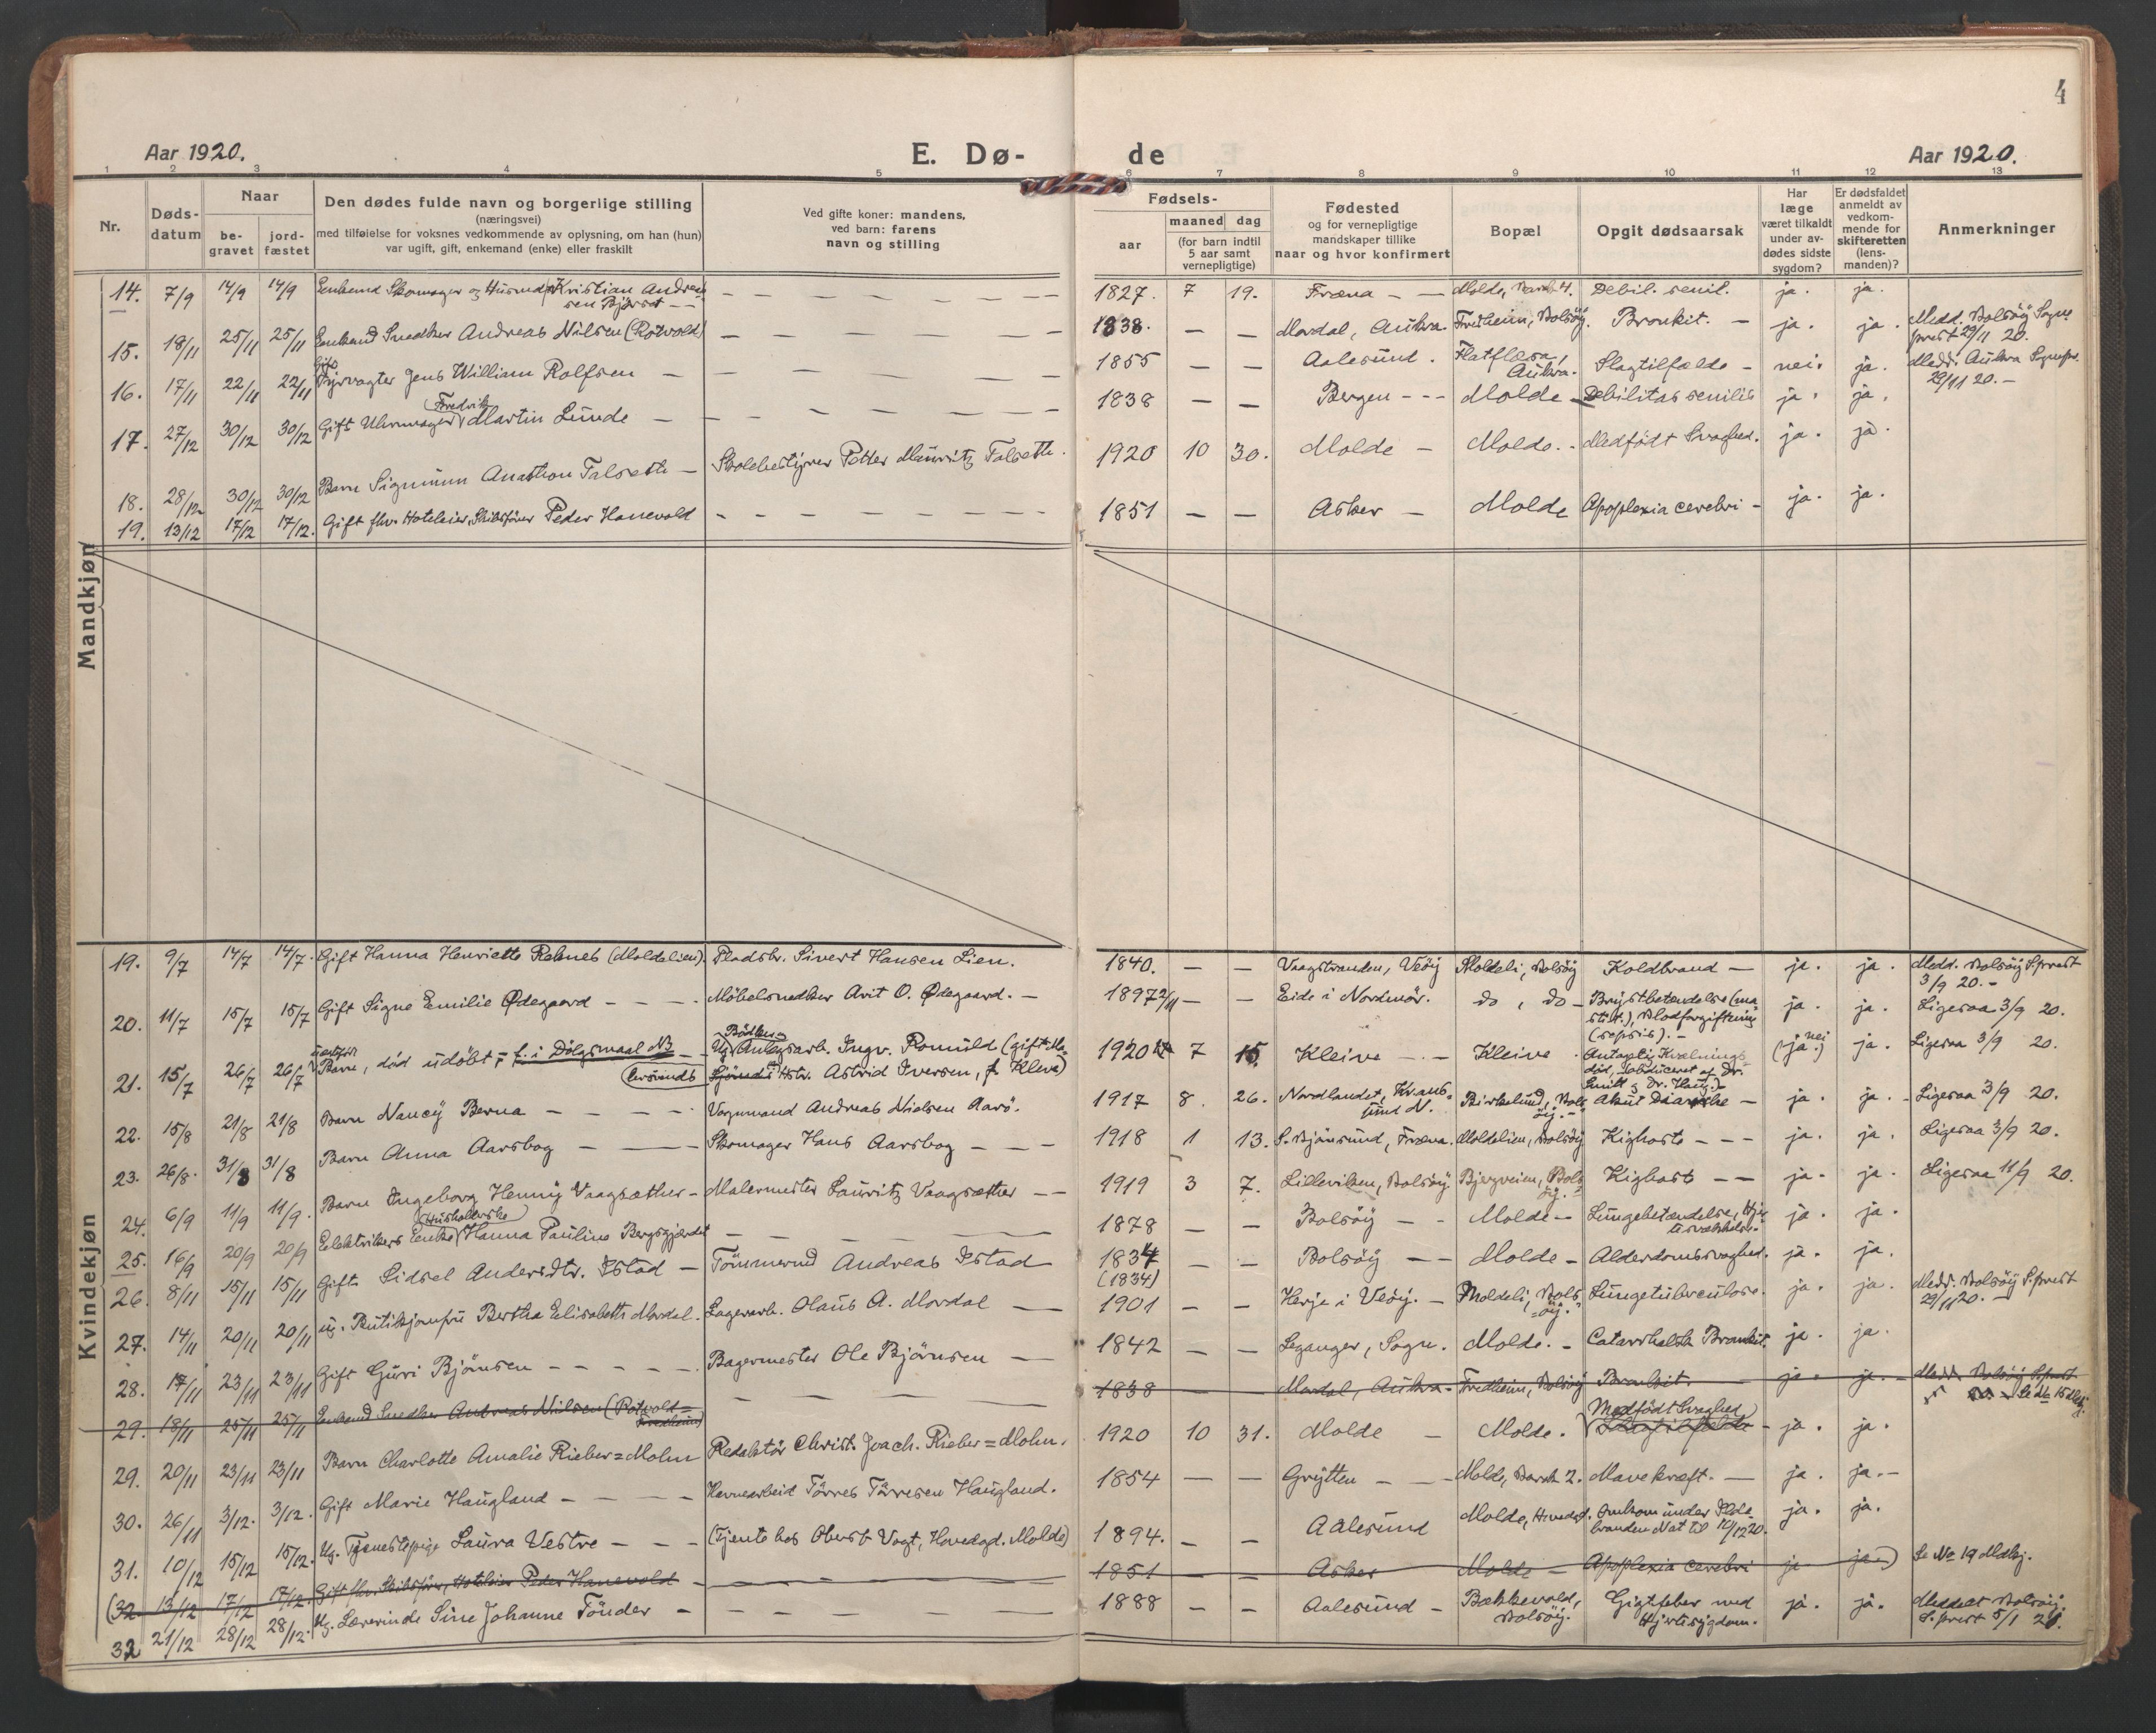 4
Aar 1920. E. Dø- de Aar 1920.
1 2 3 4 5 6 7 8 9 10 11 12 13
Nr.
Døds-
datum
Naar
be-
gravet
jord-
fæstet
Den dødes fulde navn og borgerlige stilling
(næringsvei)
med tilføielse for voksnes vedkommende av oplysning, om han (hun)
var ugift, gift, enkemand (enke) eller fraskilt
Ved gifte koner: mandens,
ved barn: farens
navn og stilling
Fødsels-
aar
maaned dag
(for barn indtil
5 aar samt
vernepligtige)
Fødested
og for vernepligtige
mandskaper tillike
naar og hvor konfirmert
Bopæl
Opgit dødsaarsak
Har
læge
været tilkaldt
under av-
dødes sidste
sygdom?
Er dødsfaldet
anmeldt av
vedkom-
mende for
skifteretten
(lens-
manden)?
Anmerkninger
Mandkjøn
14. 7/9 14/9 14/9 Enkemd Skomager og Kristian Andrea
sen Bjørset — — — 1827. 7 19. Fræna — — Molde, 4. Debil. senil. ja. ja.
15. 18/11 25/11 25/11 Enkemd Snedker Andreas Nilsen (Rötvold) — — — 1838. — — Mordal, Aukra. Fredheim, Bolsöy. Bronkit. — ja. ja. Medd. Bolsöy Sogne
prest 29/11 20.
16. 17/11 22/11 22/11 Gift
Fyrvagter Jens William Rolfsen — — — 1855 — — Aalesund. Flatflæsa,
Aukra. Slagtilfælde — nei. ja. Medd. Aukra Sognepr.
29/11 20. —
17. 27/12 30/12 30/12 Gift Uhrmager Fredrik Martin Lunde — — — 1838 — — Bergen - - - Molde — Debilitas senilis ja. ja.
18. 28/12 30/12 30/12 Barn Sigmunn Anathon Talseth — Skolebestyrer Petter Mauritz Talseth. 1920 10 30. Molde — Molde. - Medfödt Svaghed. ja. ja.
19. 13/12 17/12 17/12. Gift fhv. Hoteleier, Skibsfører Peder Hanevold - - - 1851 — — Asker — Molde Apoplexia cerebri - ja. ja.
Kvindekjøn
19. 9/7 14/7 14/7. Gift Hanna Henriette Reknes (Moldelien). Pladsbr. Sivert Hansen Lien. 1840. — — Vaagstranden, Veöy Moldeli, Bolsöy Koldbrand — ja. ja. Medd. Bolsöy S.prest
3/9 20. -
20. 11/7 15/7 15/7 Gift Signe Emilie Ødegaard - - - Möbelsnedker Arit O. Ødegaard. — 1897 2/11 — — Eide i Nordmör. do, do - Brystbetændelse (ma
stit.), Blodforgiftning
(sepsis). - ja. ja. Ligesaa 3/9 20.
21. 15/7 26/7 26/7 Barn, död udöbt, f. i Dölgsmaal NB — Ug. Anlegsarb. Ingv. Romuld (gift Ma.
Astrid Iversen, f. Kleve) 1920 7 15. Kleive - . - Kleive. Antagelig Kvælnings
död, obduceret af Dr.
Smitt & Dr. Haug. - (ja.) nei ja. Ligesaa 3/9 20.
22. 15/8 21/8 21/8 Barn Nancy Berna - - - Vognmand Andreas Nielsen Aarö. 1917 8. 26. Nordlandet, Krans-
sund N. Birkelund, Bols
öy. - Akut Diarrhe — ja. ja. - Ligesaa 3/9 20.
23. 26/8. 31/8 31/8 Barn Anna Aarsbog — — Skomager Hans Aarsbog — - — 1918 1 13. S. Björnsund, Fræna. Moldelien, Bolsöy Kighoste - - - ja. ja. Ligesaa 3/9 20.
24. 6/9 11/9 11/9. Barn Ingeborg Henny Vaagsæther - Malermester Lauritz Vaagsæther — - 1919 3 7. Lilleviken, Bolsöy Bjergveien, Bols
öy. Kighost - - ja. ja. Ligesaa 11/9 20.
25. 16/9 20/9 20/9 Elektrikers Enke Husholderske Hanna Pauline Bergsgjerdet — — — 1878 — — Bolsöy - - Molde - Lungebetændelse, Hjer
ja. ja.
26. 8/11 15/11 15/11 Gift Sidsel Andersdtr. Istad — Tömmermd Andreas Istad 1834 — — Bolsöy — — Molde - Alderdomssvaghed. ja. ja.
(1834)
27. 14/11 20/11 20/11 ug. Butikjomfru Bertha Elisabeth Mordal. Lagerarb. Olaus A. Mordal — — 1901 — — Herje i Veöy. - Moldeli, Bols
öy. Lungetuberculose. ja. ja. Medd. Bolsöy S.prest
29/11 20. —
28. 17/11 23/11 23/11 Gift Guri Björnsen - - - Bagermester Ole Björnsen — 1842 — — Leganger, Sogn. Molde. - Catarrhalsk Bronkit. ja. ja.
29. 18/11 25/11 25/11 Enkemd Snedker Andreas Nielsen (Rötvold =
Fredheim) — — — 1838 — — Mordal, Aukra - Fredheim, Bolsöy Bronkit. ja. ja. - Medd. Bolsöy S.prest
Se No 15 Mdkj.
29. 20/11 23/11 23/11 Barn Charlotte Amalie Rieber=Mohn Redaktör Christ. Joach. Rieber=Mohn. 1920 10 31. Molde — Molde. Medfödt Svaghed
Slagtilfælde - ja. ja.
30. 26/11 3/12. 3/12. Gift Marie Haugland - - - Havnearbeid Törres Törresen Haugland. 1854 — — Grytten - - - Molde, 2. Mavekræft. — ja. ja. -
31. 10/12 15/12 15/12. Ug. Tjenestepige Laura Vestre - - - (Tjente hos Oberst Vogt, Hovedgd. Molde) 1894. — — Aalesund Molde, Hovedgd. Omkom under Ilds
branden Nat til 10/12 20. ja. ja.
(32 13/12 17/12 17/12. Gift fhv. Skibsfører, Hoteleier Peder Hanevold — — — 1851 — — Asker Molde — Apoplexia cerebri ja ja.) Se No 19 Mdkj.
32 21/12 28/12 28/12. Ug. Lærerinde Sine Johanne Tönder - - - 1888 — — Aalesund - Bækkevold,
Bolsöy. Gigtfeber med
Hjertesygdom. ja. ja. Meddelt Bolsöy
S.prest 5/1 21.